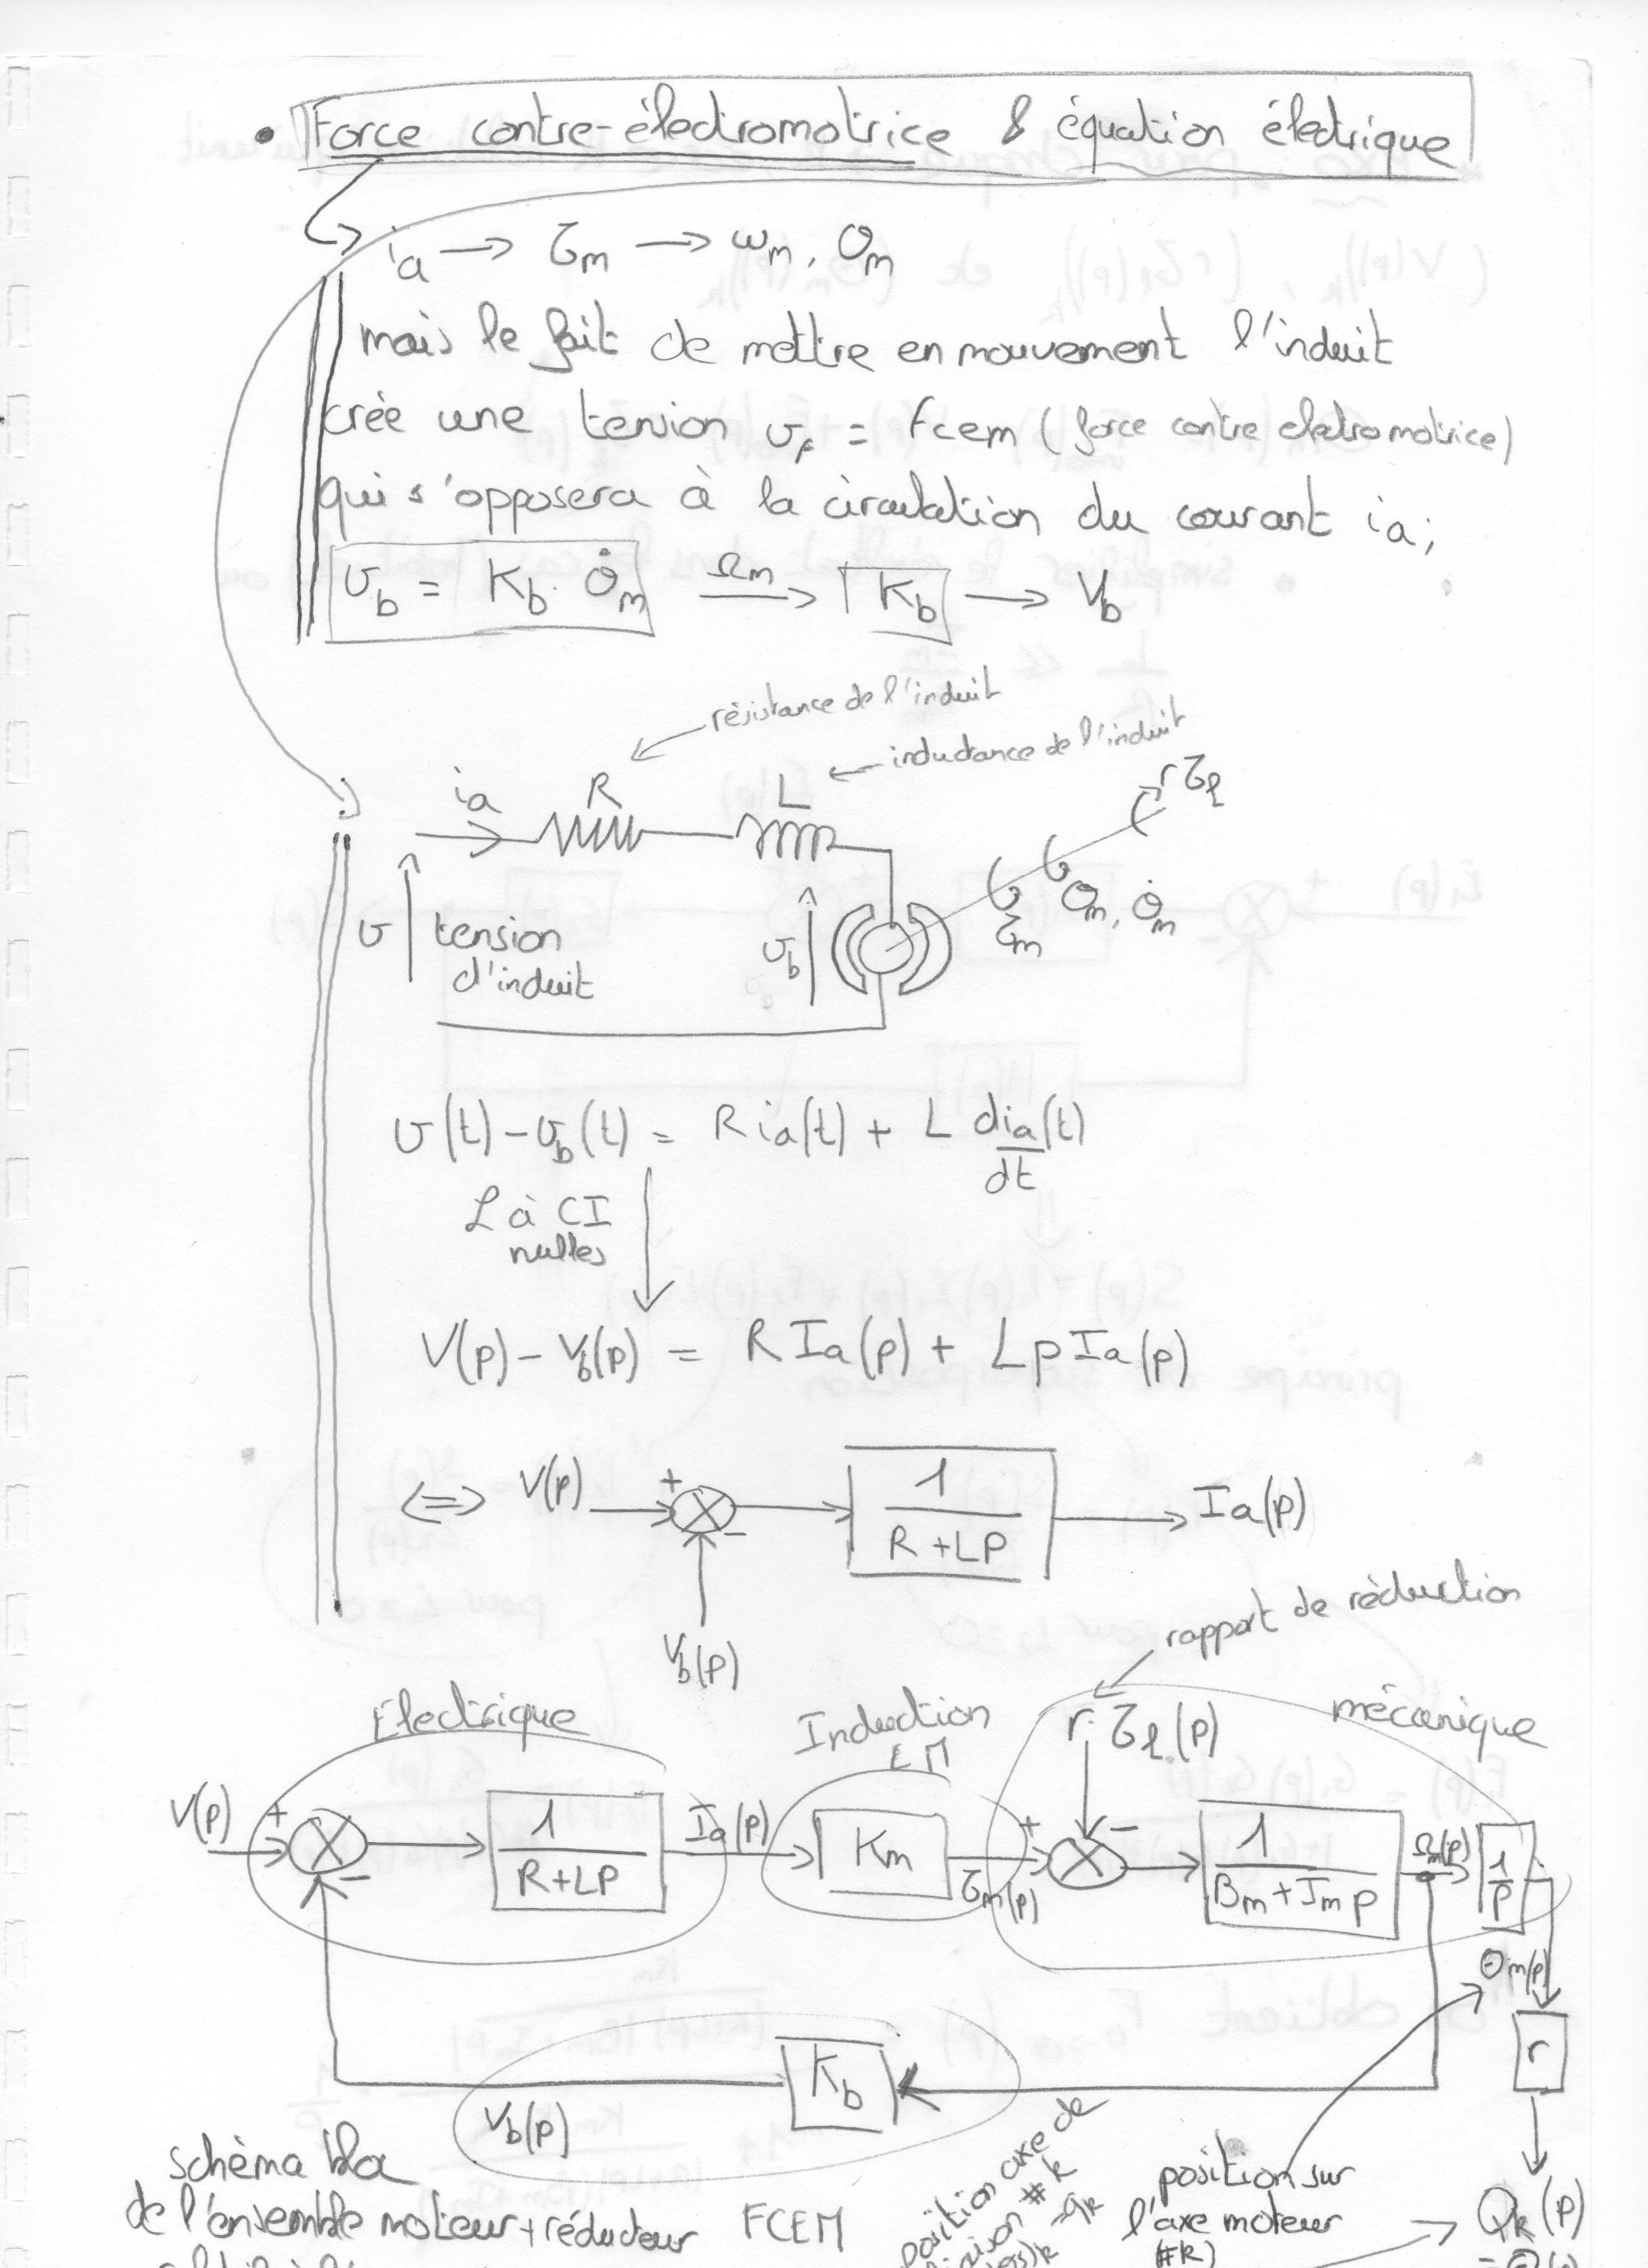 • Force contre-électromotrice & équation électrique
ia → τm → ωm, θm
mais le fait de mettre en mouvement l'induit
crée une tension
= fcem (force contre electromotrice)
qui s'opposera à la circulation du courant ia;
vb = Kb. θ̇m   Ωm → Kb → Vb
résistance de l'induit
inductance de l'induit
ia R L
r τl
τm θm, θ̇m
v tension
d'induit
vb
v(t) - vb(t) = R ia(t) + L dia(t)/dt
L à CI
nulles
V(p) - Vb(p) = R Ia(p) + L p Ia(p)
⇔ V(p) + - 1/(R+LP) → Ia(p)
Vb(p)
rapport de réduction
Electrique
Induction
EM
mécanique
r. τl (p)
V(p) + - 1/(R+LP) Ia(p) Km τm(p) + - 1/(Bm+Jm p) Ωm(p) 1/p
Θm(p)
r
Kb
Vb(p)
schéma bloc
de l'ensemble moteur + réducteur
FCEM
position axe de
#k
qk
position sur
l'axe moteur
(#k)
Qk(p)